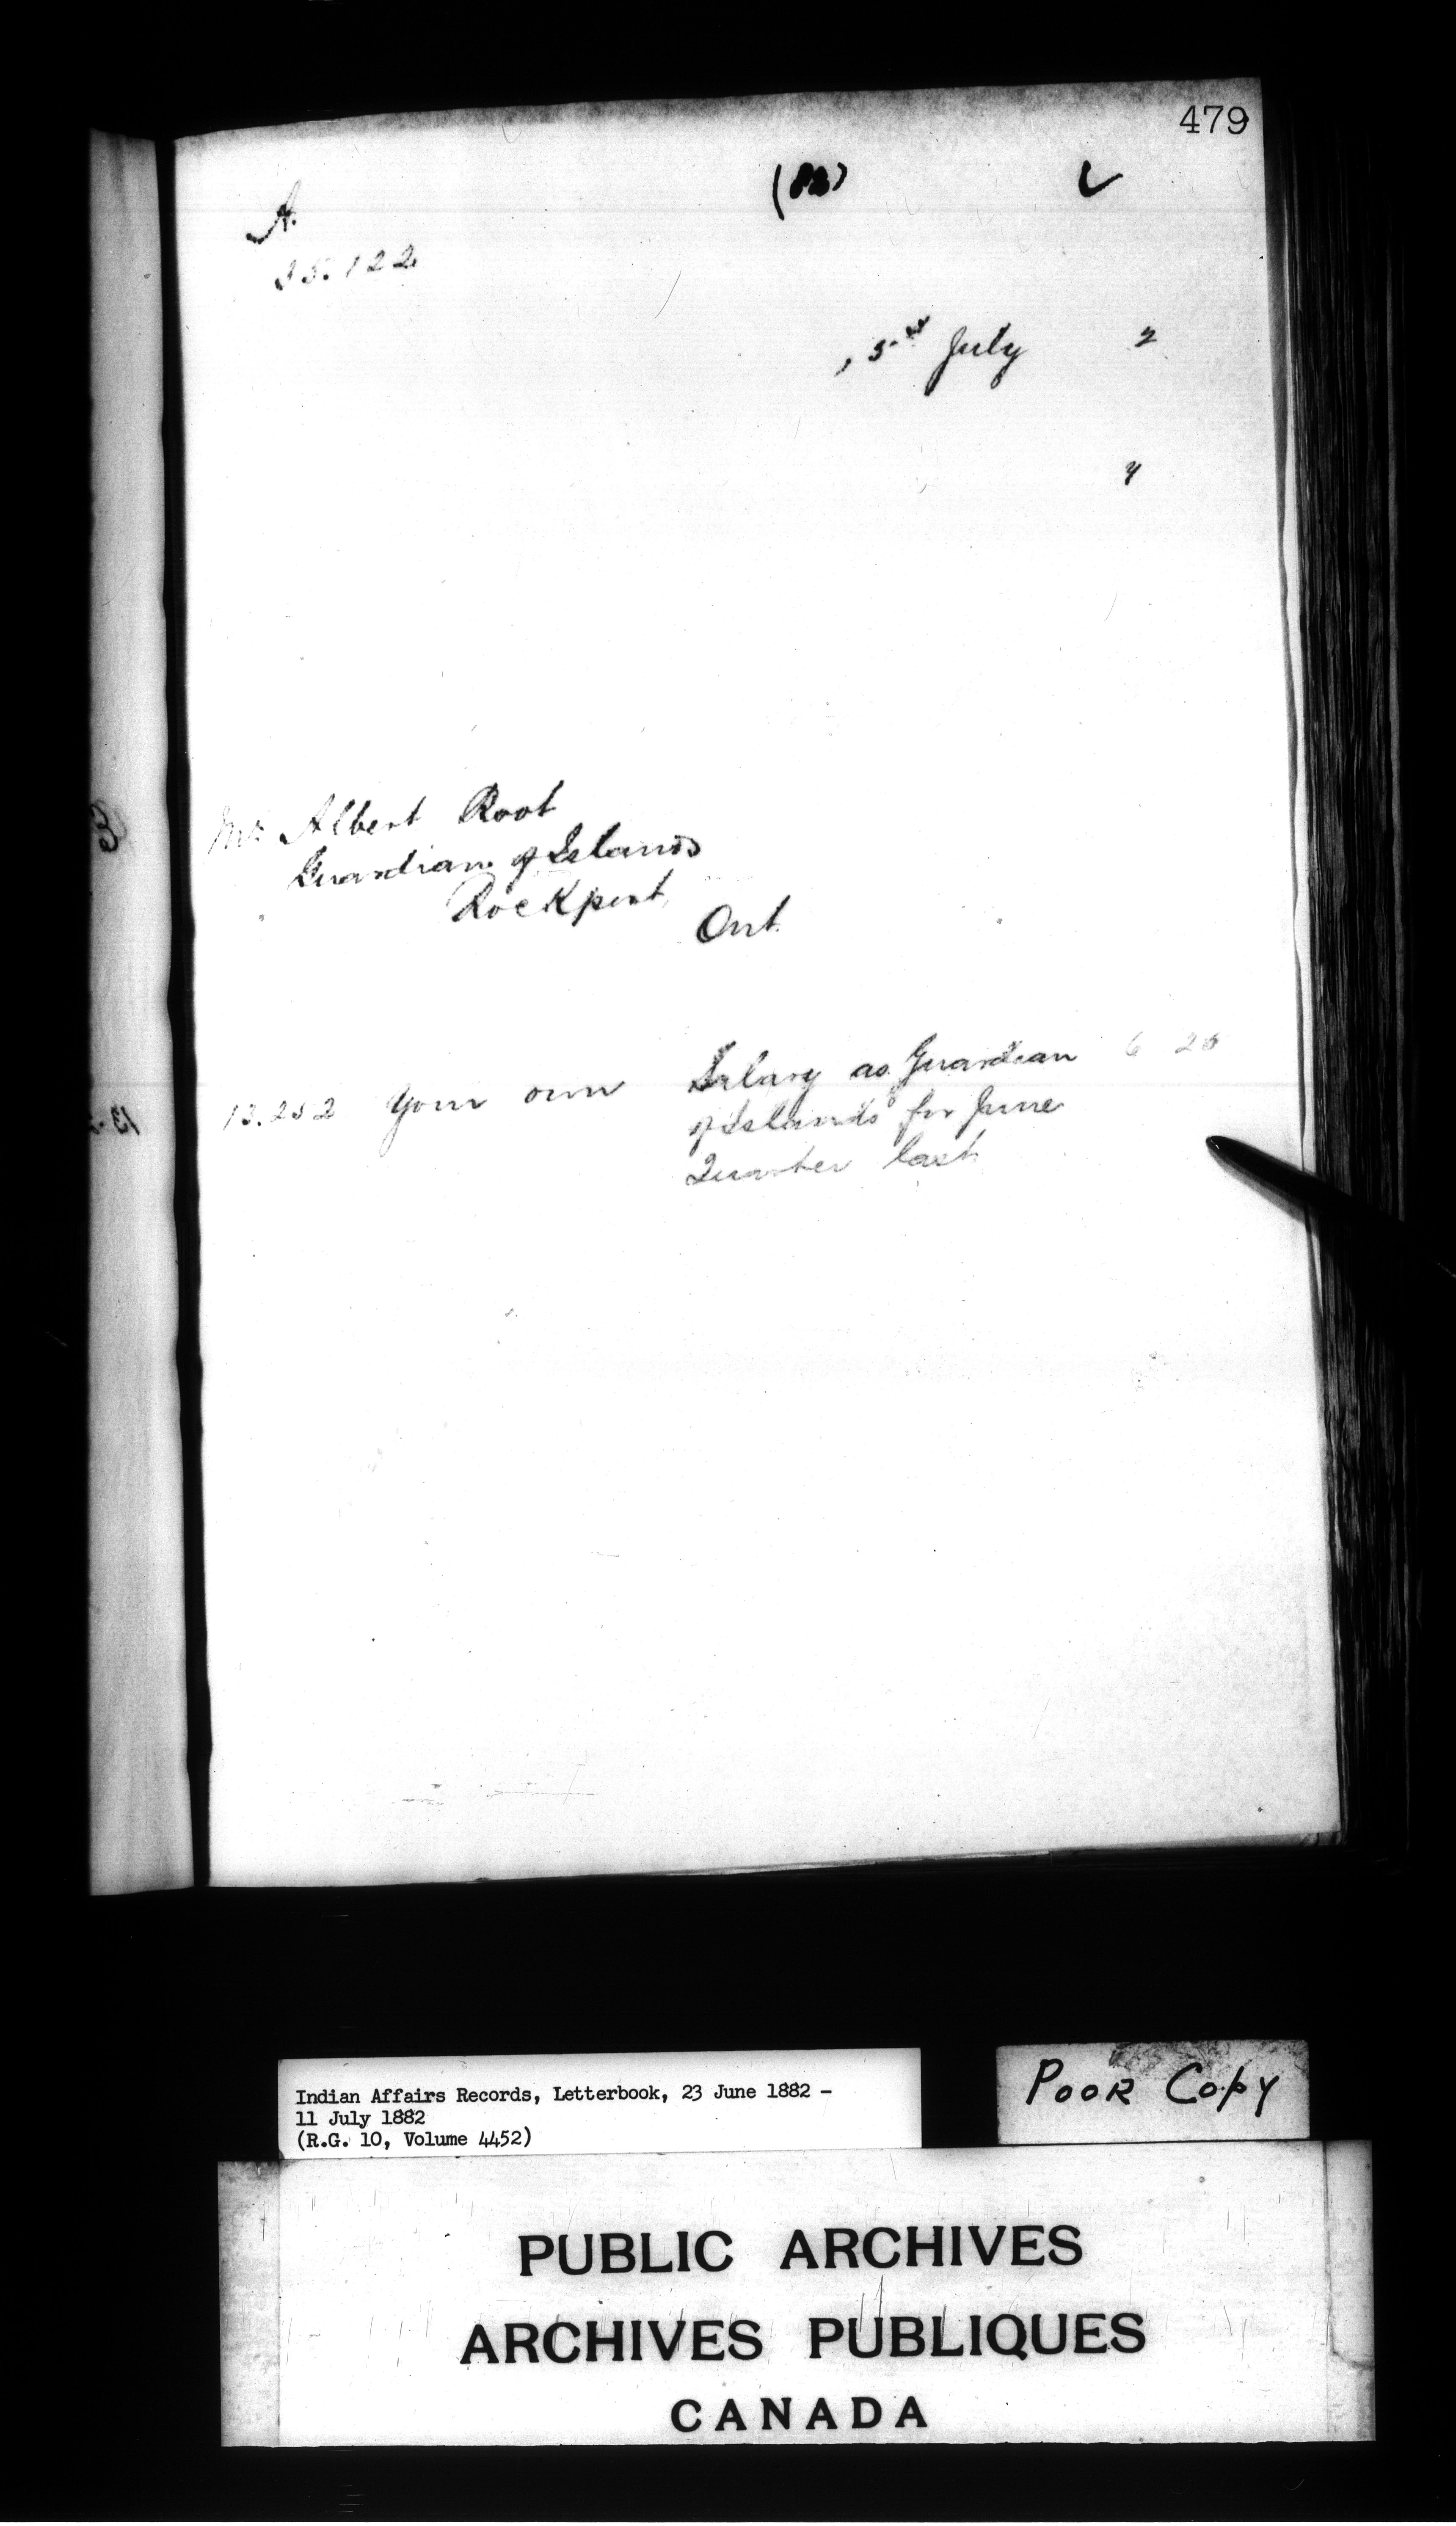 479
A.
35.122
5th July 2
4
Mr. Albert Root
Guardian of Islands
Rockport,
Ont.
13.252 Your own Salary as Guardian 6 25
of Islands for June
Quarter last
Indian Affairs Records, Letterbook, 23 June 1882 -
11 July 1882
(R.G. 10, Volume 4452)
POOR COPY
PUBLIC ARCHIVES
ARCHIVES PUBLIQUES
CANADA